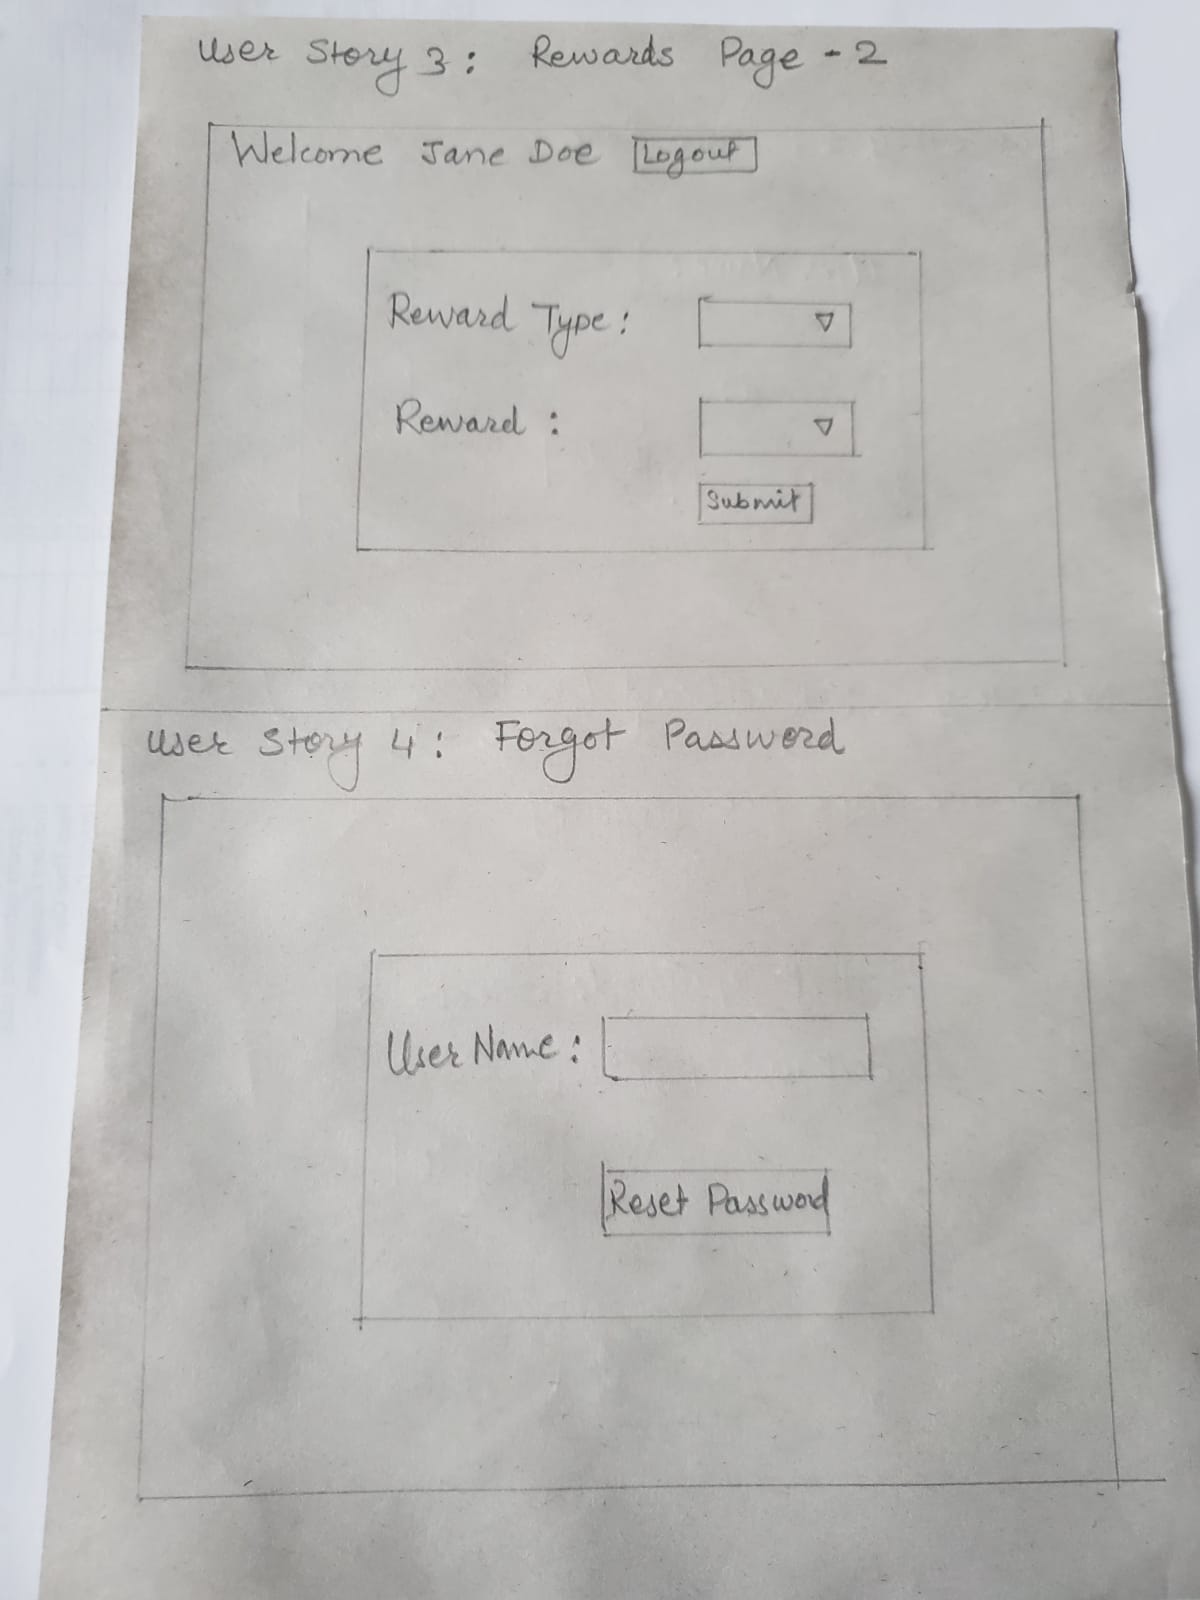 User Story 3: Rewards Page - 2
Welcome Jane Doe Logout
Reward Type:
Reward :
Submit
User Story 4: Forgot Password
User Name :
Reset Password